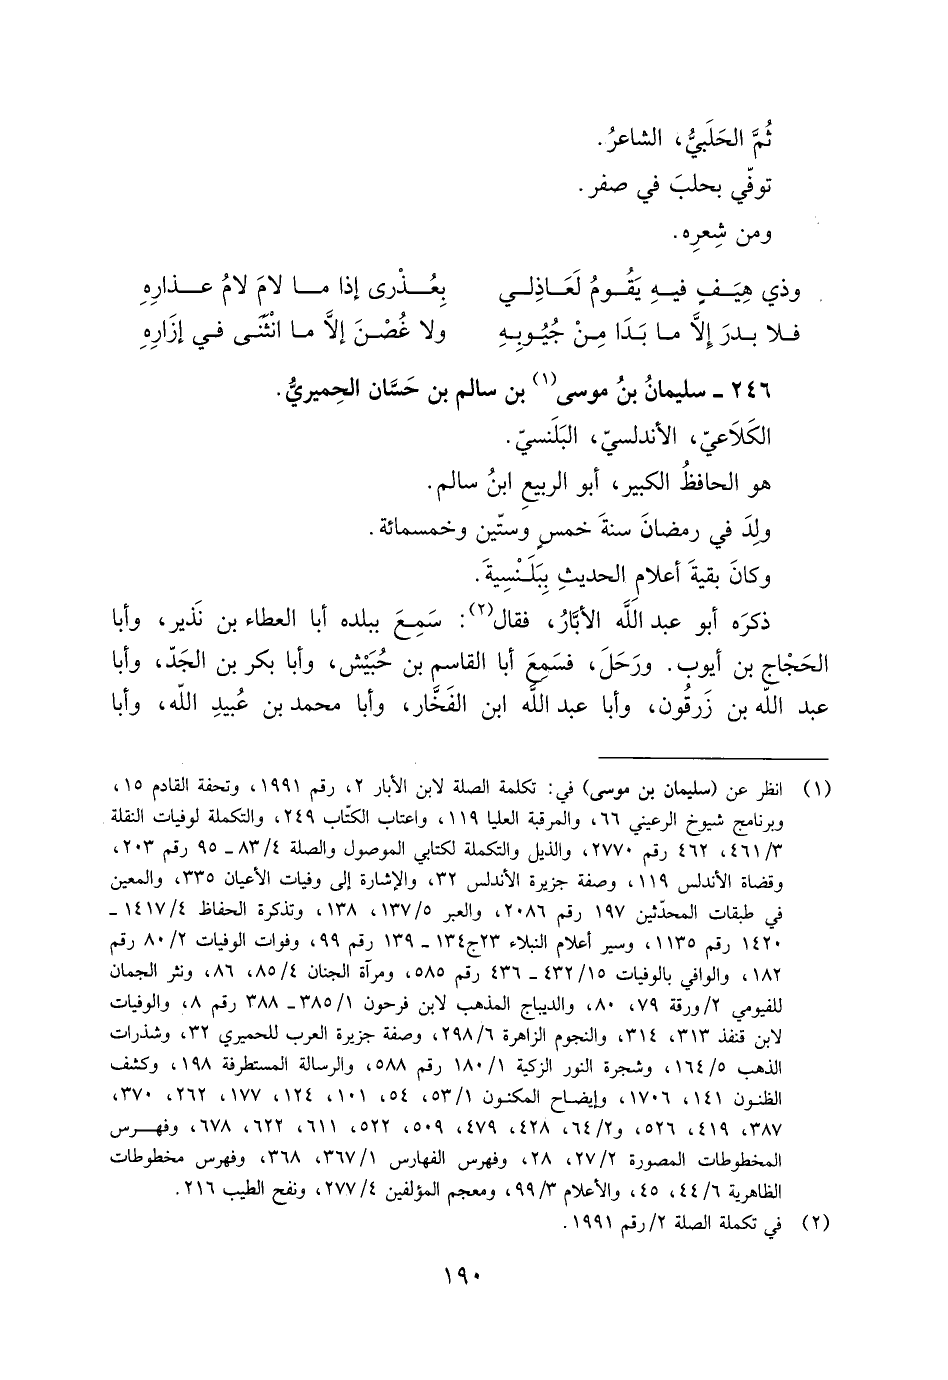 ثُمَّ الحَلَبيُّ، الشاعرُ.
توفّي بحلبَ في صفر.
ومن شِعرِه.
وذي هِيَفٍ فيهِ يَقُومُ لَعَاذِلي بِعُذْرى إذا ما لامَ لامُ عذارِهِ
فلا بدرَ إِلَّا ما بَدَا مِنْ جُيُوبِهِ ولا غُصْنَ إلَّا ما انْثَنَى في إزَارِهِ
٢٤٦ ـ سليمانُ بنُ موسى(١) بن سالم بن حَسَّان الحِميريُّ.
الكَلَاعيّ، الأندلسيّ، البَلَنسيّ.
هو الحافظُ الكبير، أبو الربيعِ ابنُ سالم.
ولِدَ في رمضانَ سنةَ خمسٍ وستّين وخمسمائة.
وكانَ بقيةَ أعلامِ الحديثِ بِبَلَنْسِيةَ.
ذكرَه أبو عبد اللَّه الأبَّارُ، فقال(٢): سَمِعَ ببلده أبا العطاء بن نَذير، وأبا
الحَجْاج بن أيوب. ورَحَلَ، فسَمِعَ أبا القاسم بن حُبَيْش، وأبا بكر بن الجَدّ، وأبا
عبد اللّه بن زَرقُون، وأبا عبد اللَّه ابن الفَخَّار، وأبا محمد بن عُبيدِ اللّه، وأبا
(١) انظر عن (سليمان بن موسى) في: تكلمة الصلة لابن الأبار ٢، رقم ١٩٩١، وتحفة القادم ١٥،
وبرنامج شيوخ الرعيني ٦٦، والمرقبة العليا ١١٩، واعتاب الكتّاب ٢٤٩، والتكملة لوفيات النقلة
٤٦١/٣، ٤٦٢ رقم ٢٧٧٠، والذيل والتكملة لكتابي الموصول والصلة ٨٣/٤ ـ ٩٥ رقم ٢٠٣،
وقضاة الأندلس ١١٩، وصفة جزيرة الأندلس ٣٢، والإشارة إلى وفيات الأعيان ٣٣٥، والمعين
في طبقات المحدّثين ١٩٧ رقم ٢٠٨٦، والعبر ١٣٧/٥، ١٣٨، وتذكرة الحفاظ ١٤١٧/٤ ـ
١٤٢٠ رقم ١١٣٥، وسير أعلام النبلاء ٢٣ج١٣٤ ـ ١٣٩ رقم ٩٩، وفوات الوفيات ٨٠/٢ رقم
١٨٢، والوافي بالوفيات ٤٣٢/١٥ ـ ٤٣٦ رقم ٥٨٥، ومرآة الجنان ٨٥/٤، ٨٦، ونثر الجمان
للفيومي ٢/ورقة ٧٩، ٨٠، والديباج المذهب لابن فرحون ٣٨٥/١ـ ٣٨٨ رقم ٨، والوفيات
لابن قنفذ ٣١٣، ٣١٤، والنجوم الزاهرة ٢٩٨/٦، وصفة جزيرة العرب للحميري ٣٢، وشذرات
الذهب ١٦٤/٥، وشجرة النور الزكية ١٨٠/١ رقم ٥٨٨، والرسالة المستطرفة ١٩٨، وكشف
الظنون ١٤١، ١٧٠٦، وإيضاح المكنون ٥٣/١، ٥٤، ١٠١، ١٢٤، ١٧٧، ٢٦٢، ٣٧٠،
٣٨٧، ٤١٩، ٥٢٦، و٦٤/٢، ٤٢٨، ٤٧٩، ٥٠٩، ٥٢٢، ٦١١، ٦٢٢، ٦٧٨، وفهرس
المخطوطات المصورة ٢٧/٢، ٢٨، وفهرس الفهارس ٣٦٧/١، ٣٦٨، وفهرس مخطوطات
الظاهرية ٤٤/٦، ٤٥، والأعلام ٩٩/٣، ومعجم المؤلفين ٢٧٧/٤، ونفح الطيب ٢١٦.
(٢) في تكملة الصلة ٢/رقم ١٩٩١.
١٩٠